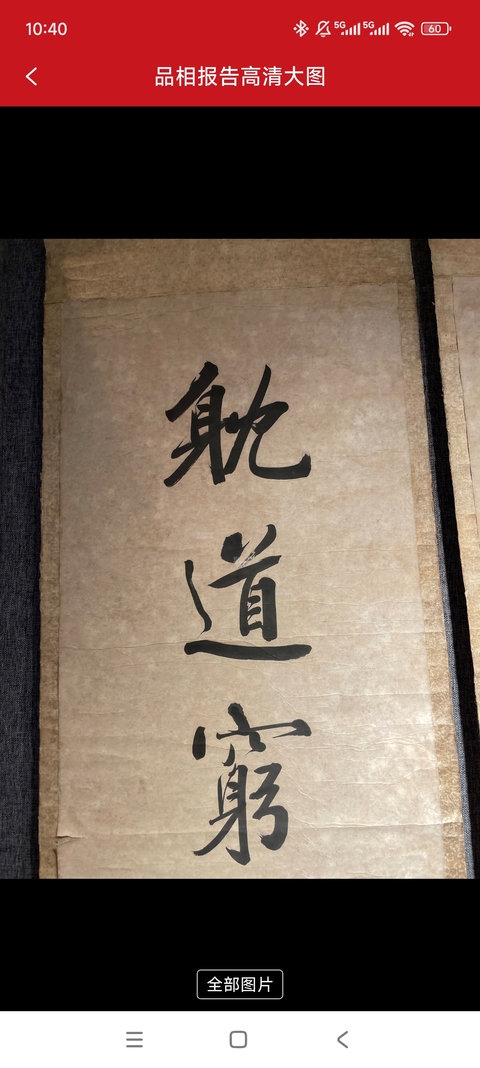 10:40
5G 5G 60
品相报告高清大图
躭
道
窮
全部图片